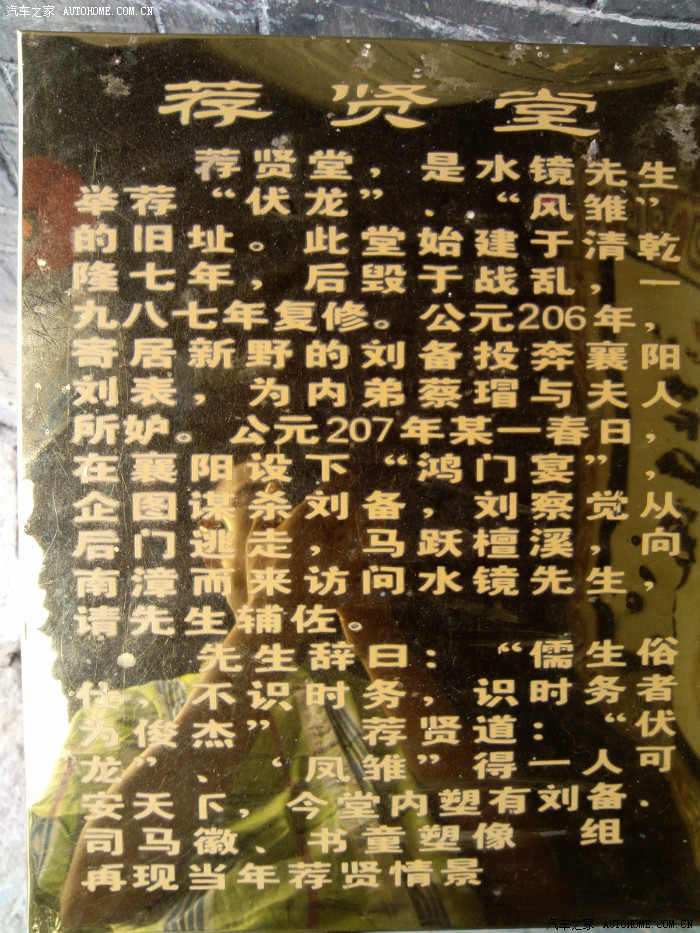 汽车之家 AUTOHOME.COM.CN
荐贤堂
荐贤堂，是水镜先生
举荐“伏龙”、“风雏”
的旧址。此堂始建于清乾
隆七年，后毁于战乱，一
九八七年复修。公元206年，
寄居新野的刘备投奔襄阳
刘表，为内弟蔡瑁与夫人
所妒。公元207年某一春日，
在襄阳设下“鸿门宴”，
企图谋杀刘备，刘察觉从
后门逃走，马跃檀溪，向
南漳而来访问水镜先生，
请先生辅佐。
先生辞曰：“儒生俗
仕，不识时务，识时务者
为俊杰” 荐贤道：“伏
龙”、‘凤雏”得一人可
安天下，今堂内塑有刘备．
司马徽、书童塑像 组
再现当年荐贤情景
汽车之家 AUTOHOME.COM.CN